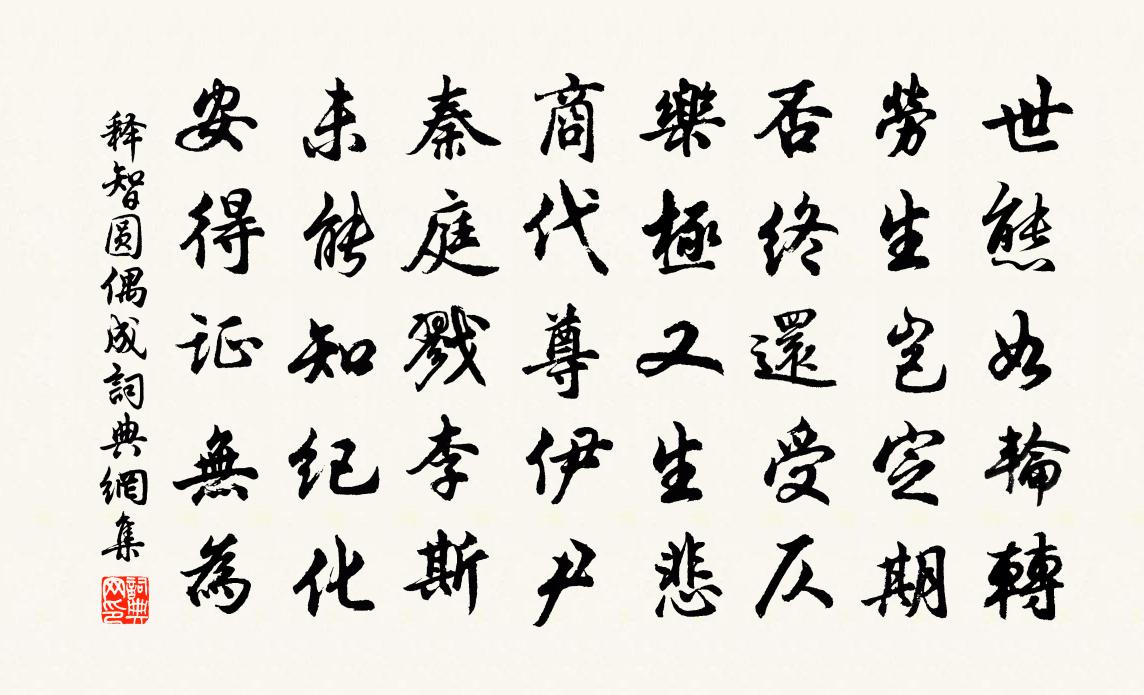 世態如輪轉
勞生豈定期
否終還受仄
樂極又生悲
商代尊伊尹
秦庭戮李斯
未能知紀化
安得证無為
释智圆偶成詞典網集